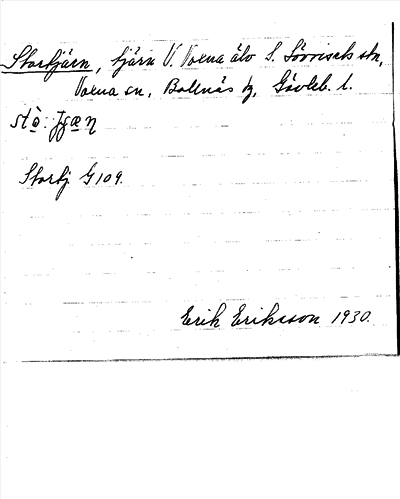 Stortjärn, tjärn V. Voxna älv S. Sövviseks stn,
Voxna sn, Bollnäs tg, Gävleb. l.
Stortj G109.
Erik Eriksson 1930.